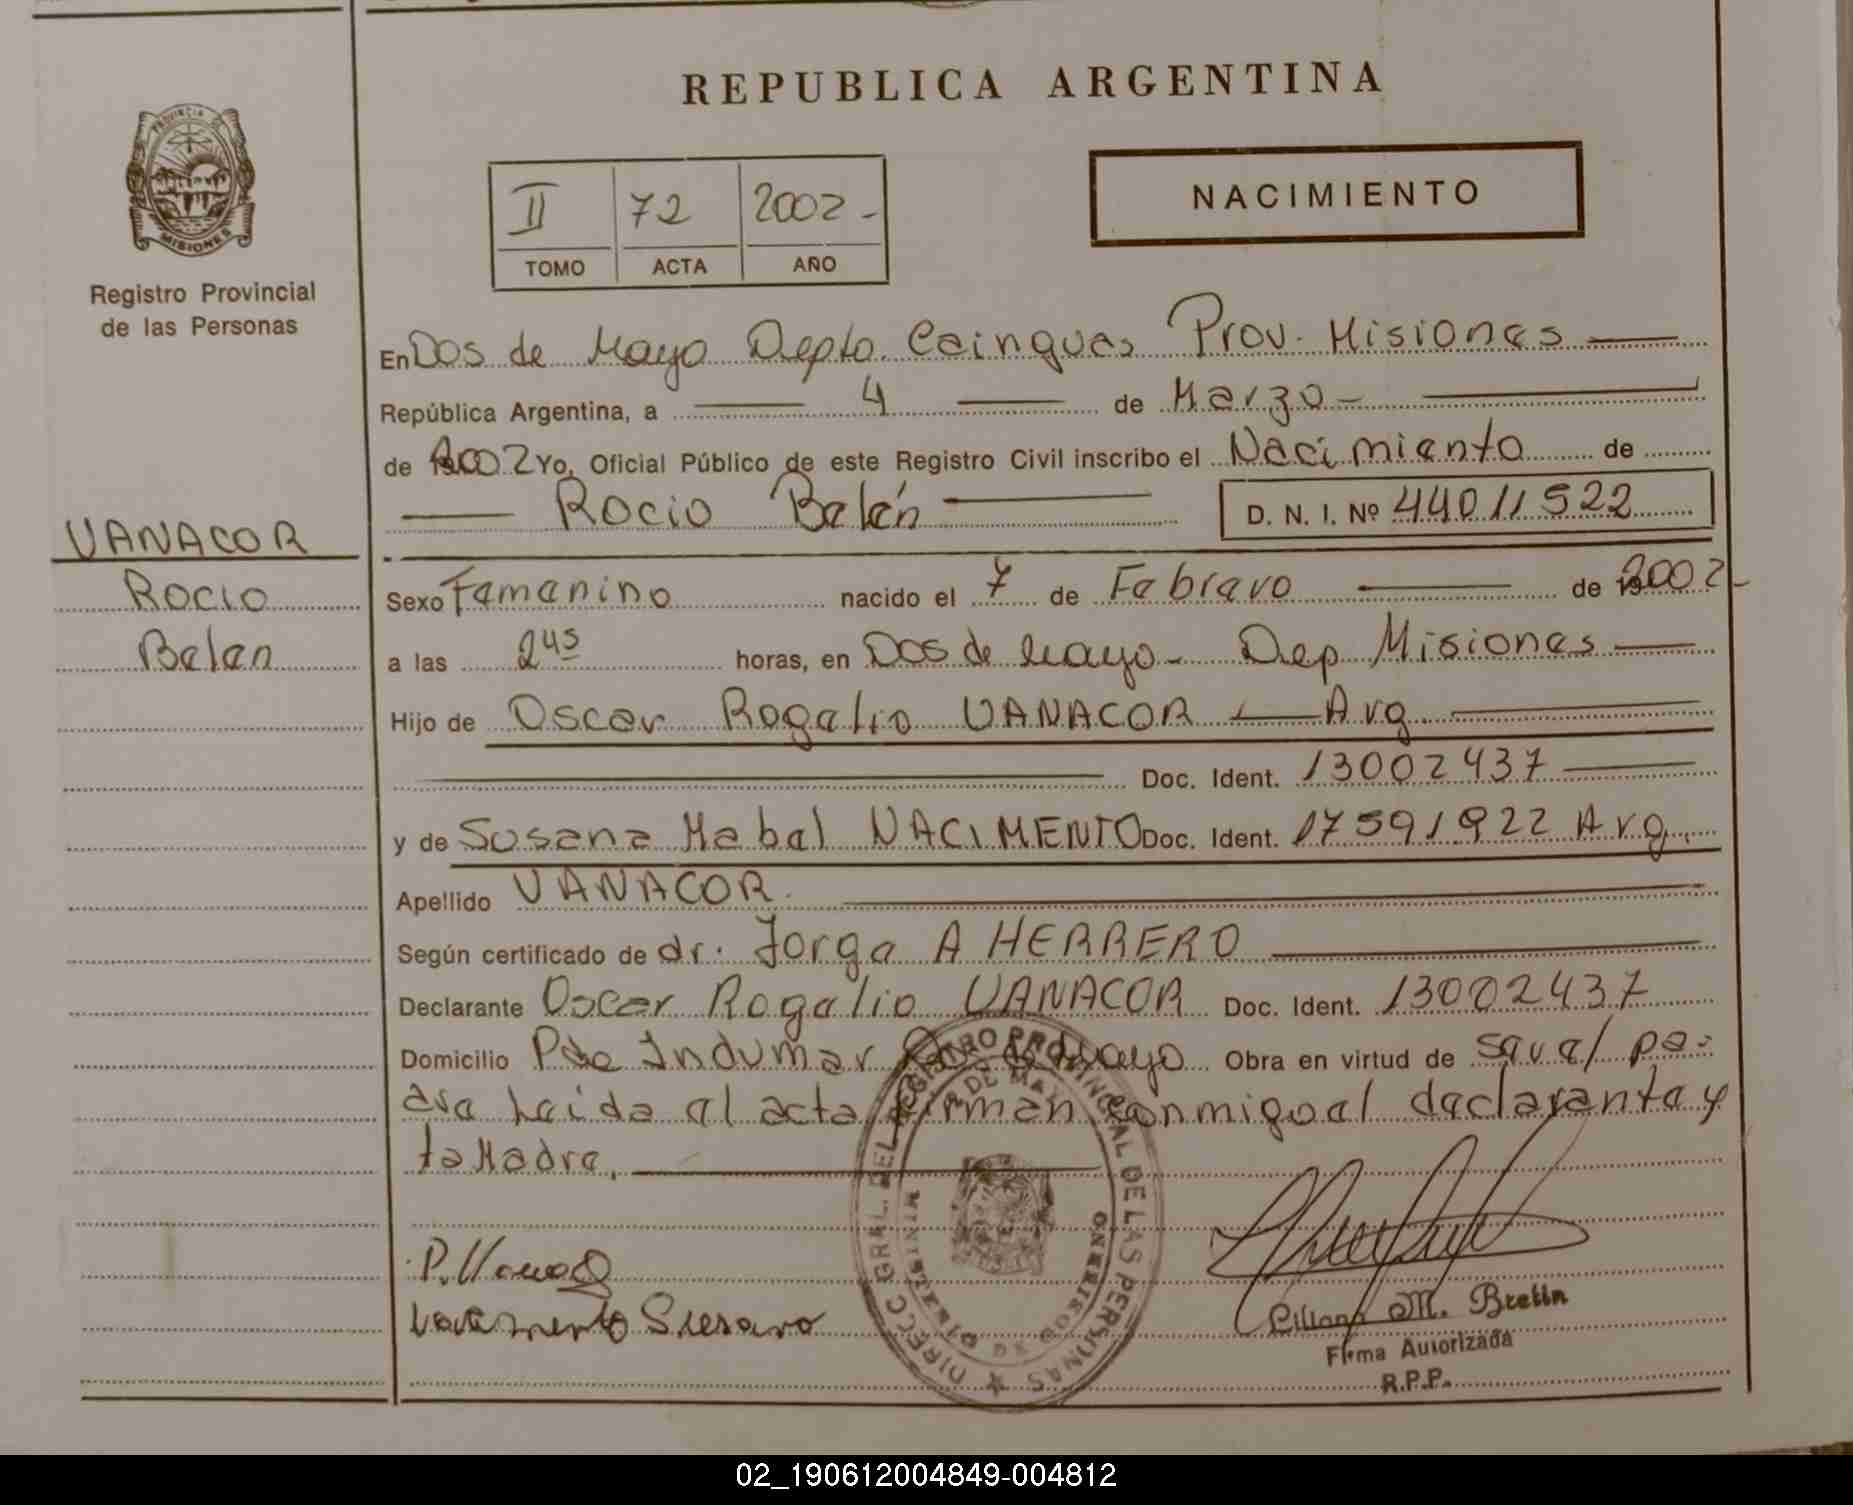 REPUBLICA ARGENTINA
PROVINCIA DE
MISIONES
Registro Provincial
de las Personas
II 72 2002-
TOMO ACTA AÑO
NACIMIENTO
En Dos de Mayo Depto. Cainguas Prov. Misiones
República Argentina, a 4 de Marzo-
de 2002 Yo, Oficial Público de este Registro Civil inscribo el Nacimiento de
Rocio Belén D. N. I. Nº 44011522
VANACOR
Rocio
Belen
Sexo Femenino nacido el 7 de Febrero de 2002-
a las 2 45 horas, en Dos de Mayo- Dep. Misiones
Hijo de Oscar Rogelio VANACOR Arg.
Doc. Ident. 13002437
y de Susana Mabel NACIMENTO Doc. Ident. 17591922 Arg.
Apellido VANACOR.
Según certificado de dr. Jorge A HERRERO
Declarante Oscar Rogelio VANACOR Doc. Ident. 13002437
Domicilio Indumar de Mayo Obra en virtud de
Leida el acta firman conmigo el declarante y
la Madre,
DIRECC. GRAL. DEL REGISTRO PROVINCIAL DE LAS PERSONAS
2 DE MAYO
MINISTERIO DE GOBIERNO
Nacimento Susana
Liliana M. Brettin
Firma Autorizada
R.P.P.
02_190612004849-004812